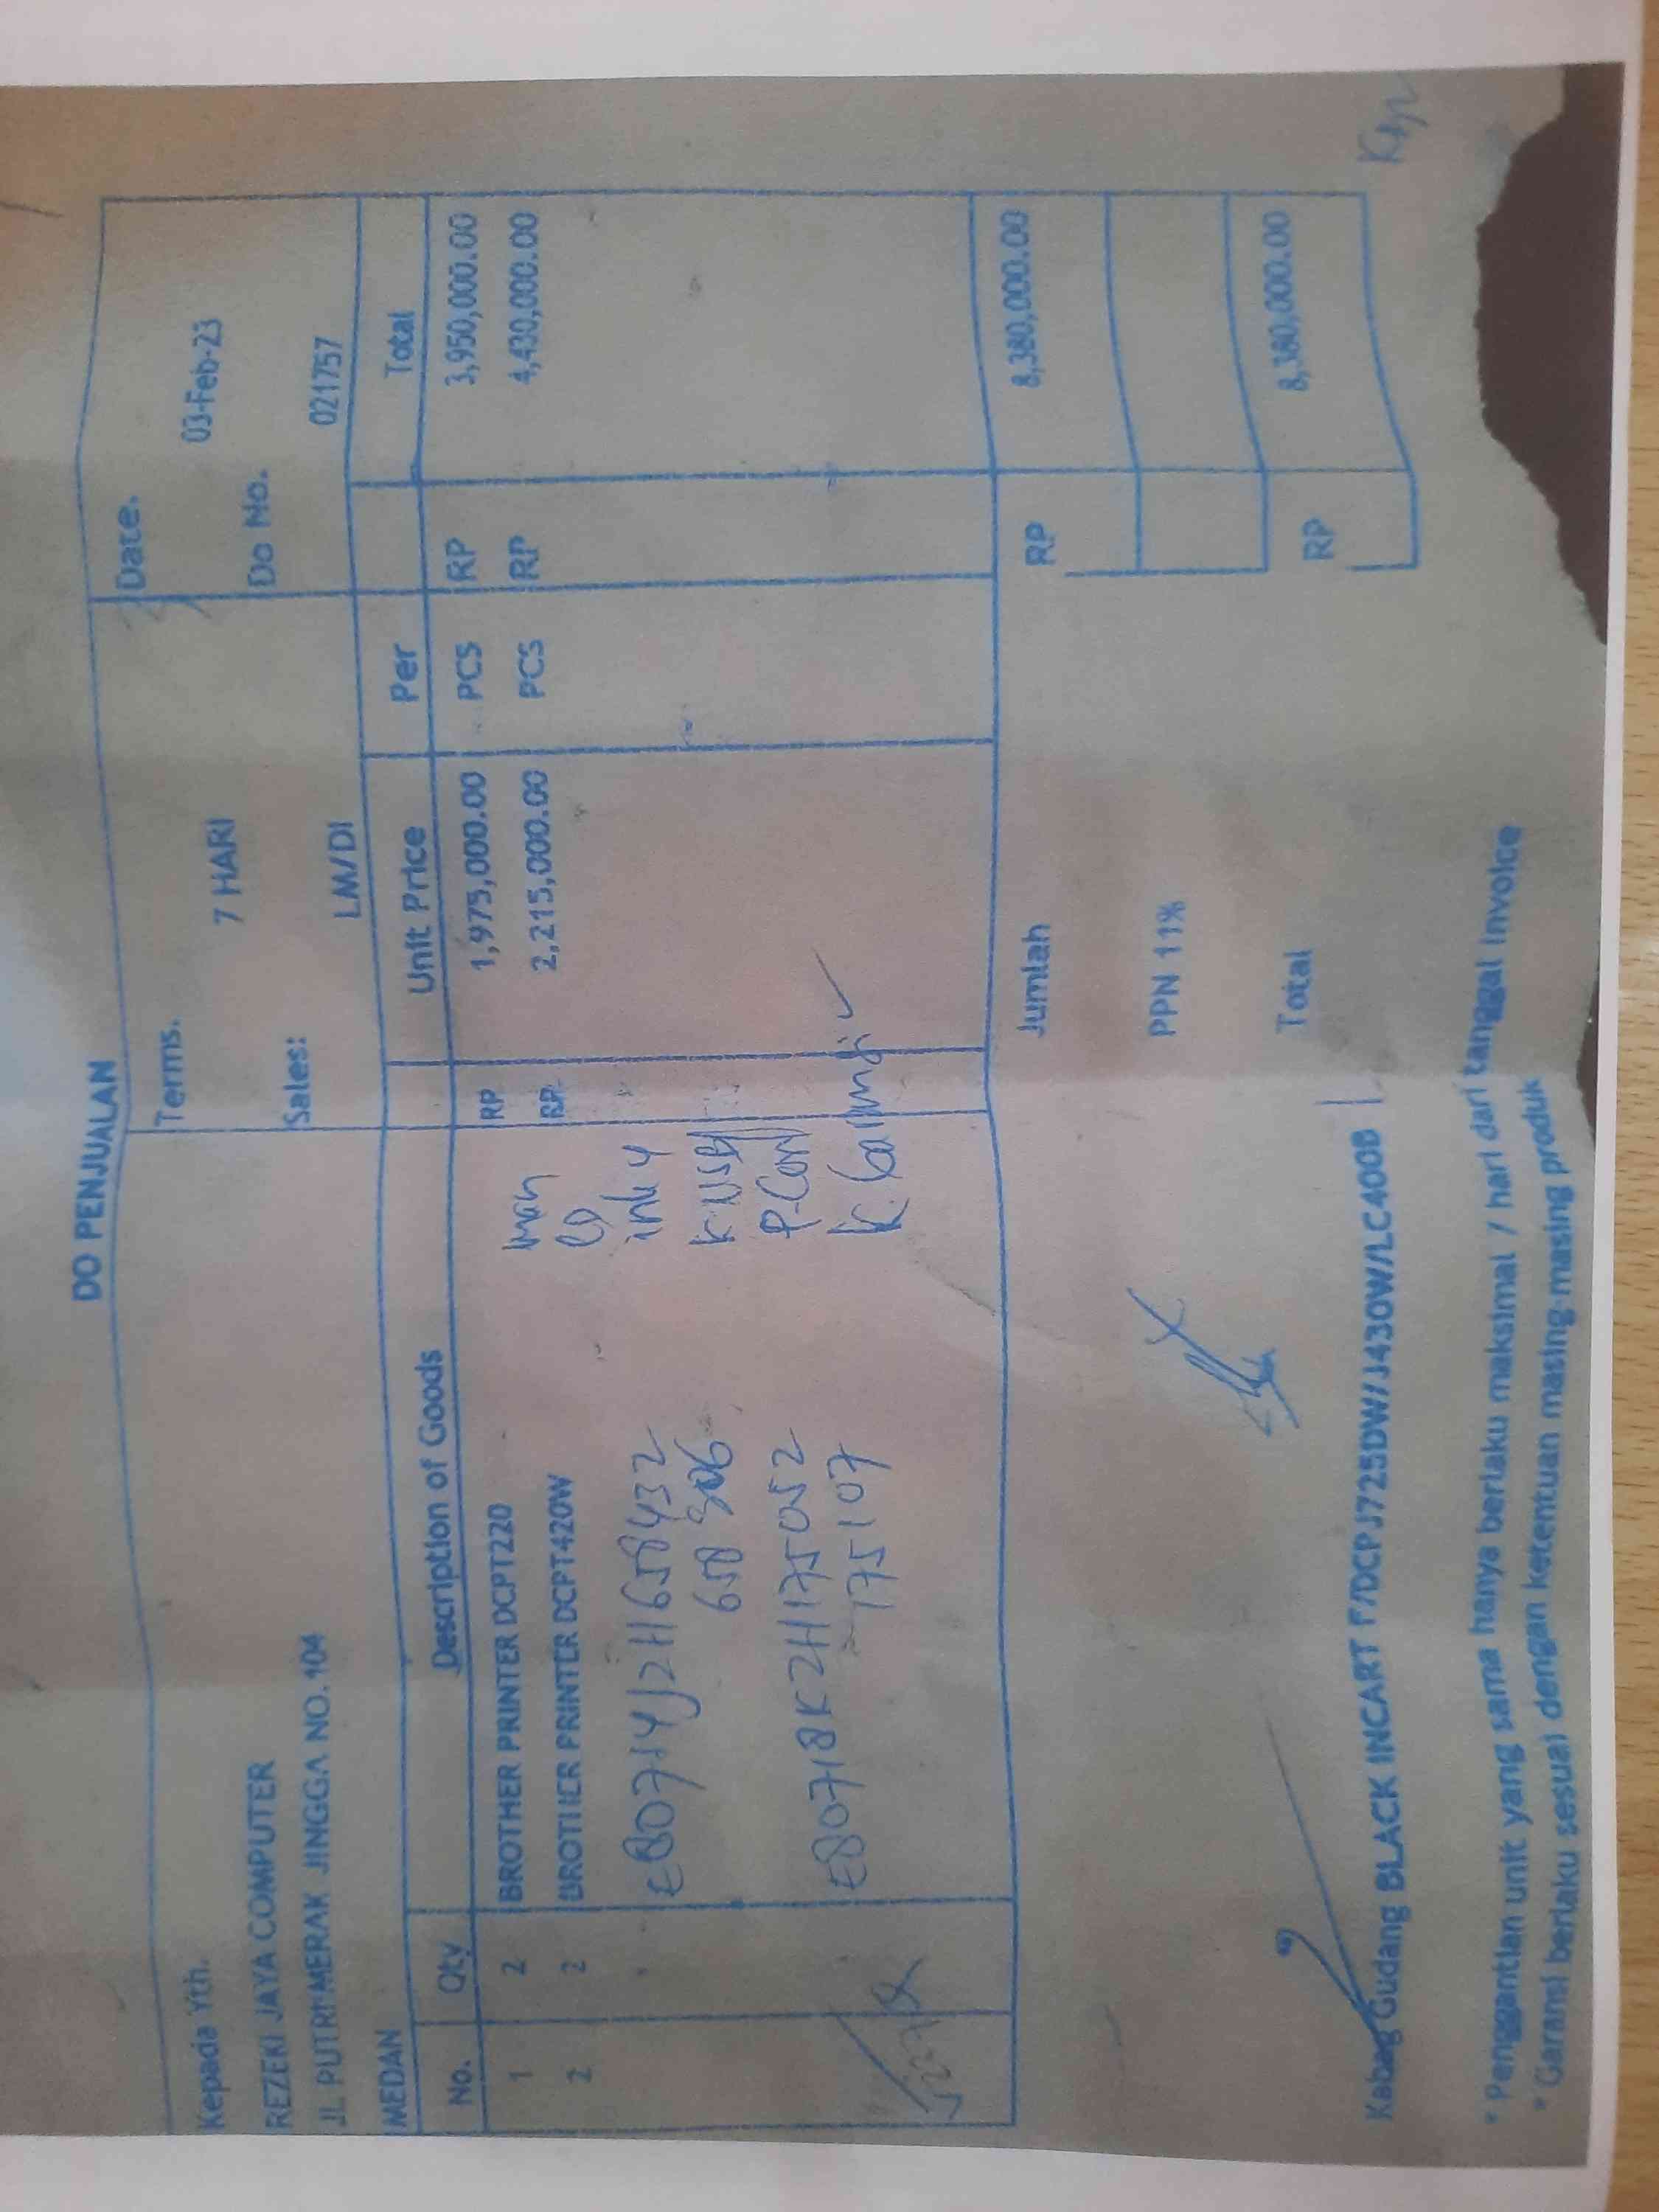 DO PENJUALAN
Kepada Yth. Terms. Date.
7 HARI 03-Feb-23
REZEKI JAYA COMPUTER Sales: Do No.
JL PUTRI MERAK JINGGA NO. 104 LM/DI 021757
MEDAN
No. Qty Description of Goods Unit Price Per Total
1 2 BROTHER PRINTER DCPT220 RP 1,975,000.00 PCS RP 3,950,000.00
2 2 BROTHER PRINTER DCPT420W RP 2,215,000.00 PCS RP 4,430,000.00
man
CD
ink 4
658432
658 906
K USB
P.Con
E80718K2H175052
175107
K. Garansi
Jumlah RP 8,380,000.00
PPN 11%
Total RP 8,380,000.00
Kabag Gudang BLACK INCART F/DCPJ725DW/J430W/LC400B
* Penggantian unit yang sama hanya berlaku maksimal 7 hari dari tanggal invoice
* Garansi berlaku sesuai dengan ketentuan masing-masing produk